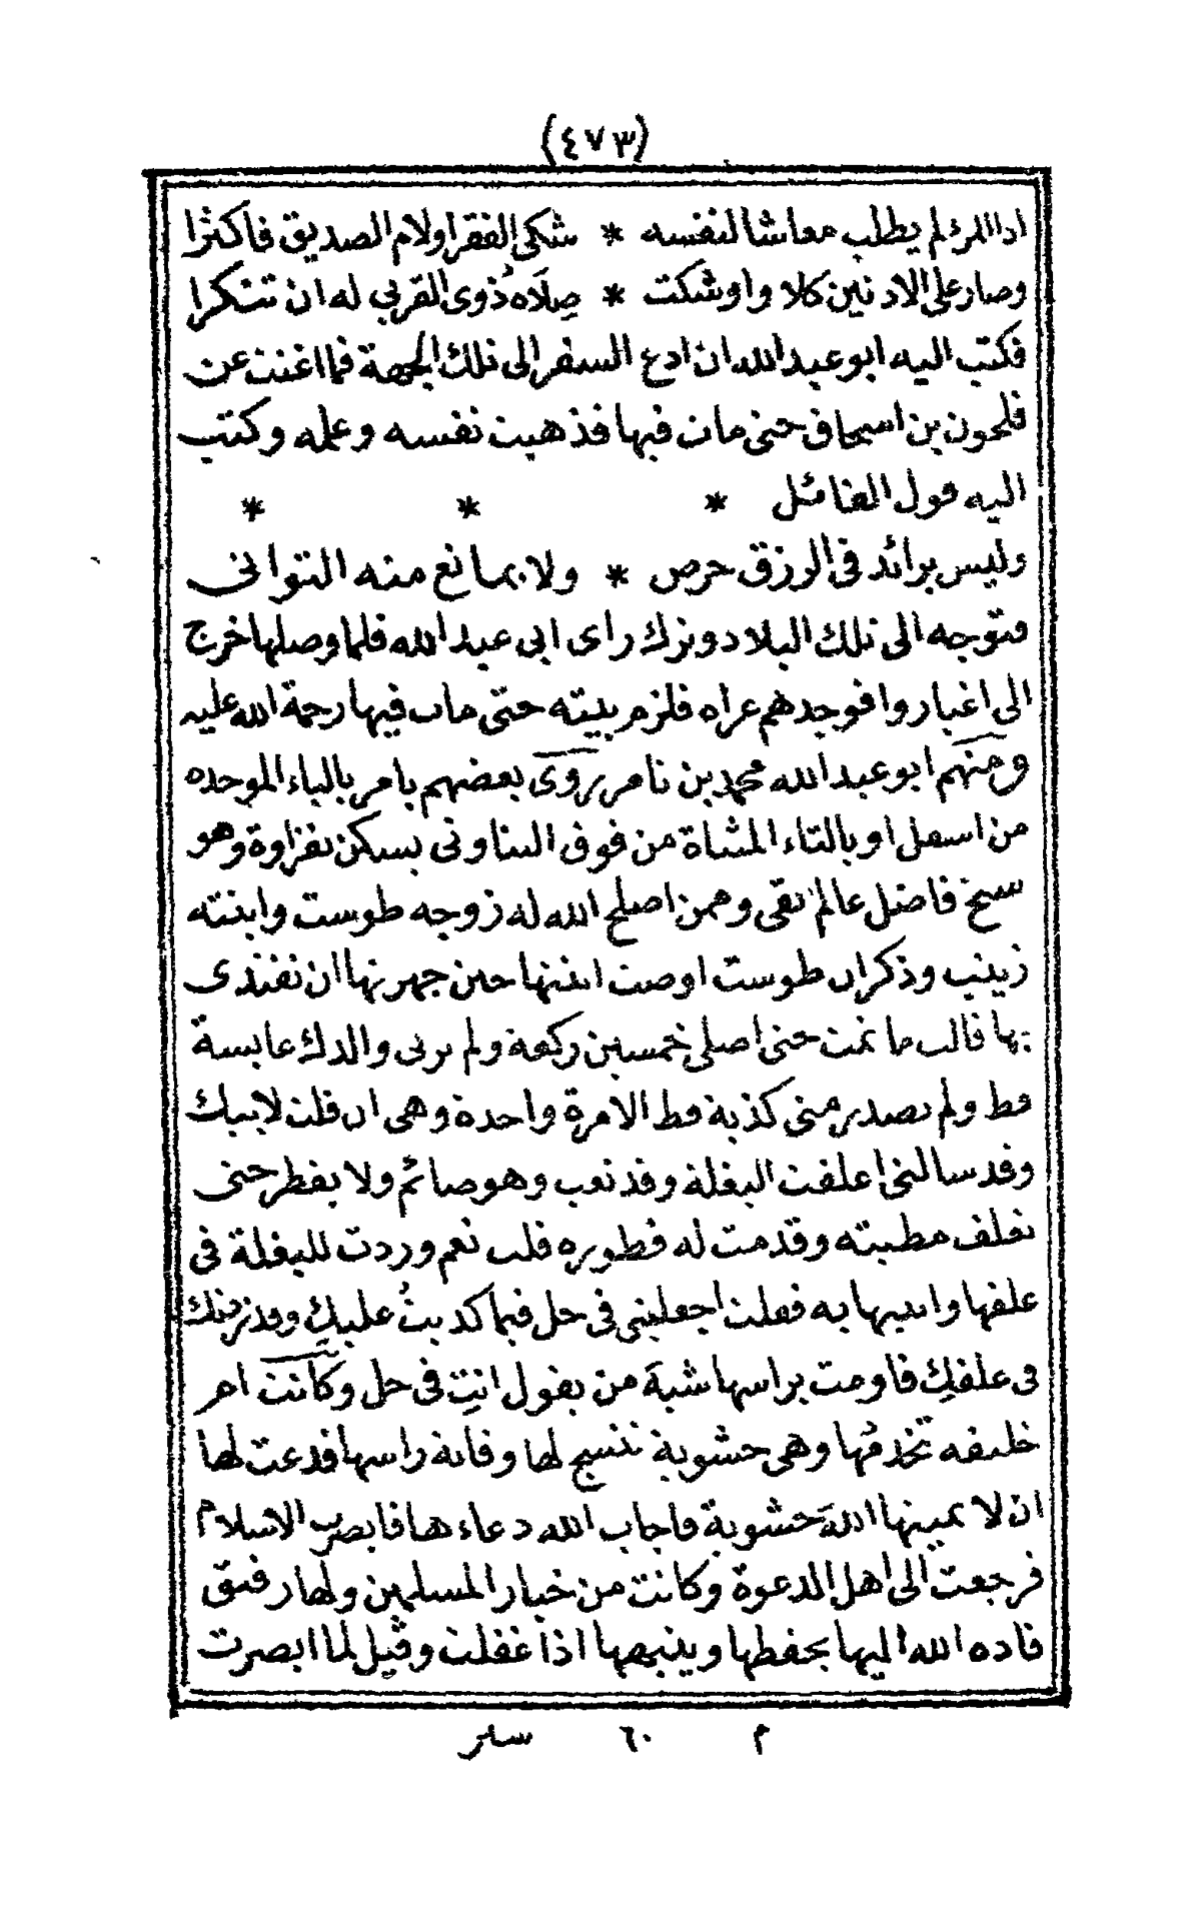 (٤٧٣)
اذا المرء لم يطلب معاشا لنفسه * شكى الفقر اولام الصديق فاكثرا
وصار على الادنين كلا واوشكت * صِلَاه ذُوى القربى له ان تنكرا
فكتب اليه ابو عبد الله ان ادع السفر الى تلك الجهة فما اغنت عن
فلحون بن اسحاق حتى مات فيها فذهبت نفسه وعلمه وكتب
اليه قول القائل * * *
وليس بزائد فى الرزق حرص * ولا بمانع منه التوانى
فتوجه الى تلك البلاد وترك راى ابى عبد الله فلما وصلها خرج
الى اغيار وا فوجدهم عراه فلزم بيته حتى مات فيها رحمة الله عليه
ومنهم ابو عبد الله محمد بن تامر يروى بعضهم يامر بالباء الموحده
من اسفل او بالتاء المثناة من فوق التناوتى بسكن نفزاوة وهو
شيخ فاضل عالم تقى وممن اصلح الله له زوجه طوست وابنته
زينب وذكر ان طوست اوصت ابنتها حين جهزتها ان تقتدى
بها قالت ما نمت حتى اصلى خمسين ركعة ولم يرنى والدك عابسة
قط ولم تصدر منى كذبة قط الا مرة واحدة وهى ان قلت لابيك
وقد سالنى اعلفت البغلة وقد تعب وهو صائم ولا يفطر حتى
تعلف مطيته وقدمت له فطوره قلت نعم وردت للبغلة فى
علفها واتيتها به فقلت اجعلينى فى حل فيما كذبتُ عليكِ وقد زدتك
فى علفكِ فاومت براسها شبة من يقول انتِ فى حل وكانت امر
خليفه تخدمُها وهى حشوية تنسج لها وقاية راسها فدعت لها
ان لا يميتها اللهَ حشوية فاجاب الله دعاءها فابصرت الاسلام
فرجعت الى اهل الدعوة وكانت من خيار المسلمين ولها رفيق
قاده الله اليها يحفظها وينبهها اذا غفلت وقيل لما ابصرت
م ٦٠ سير